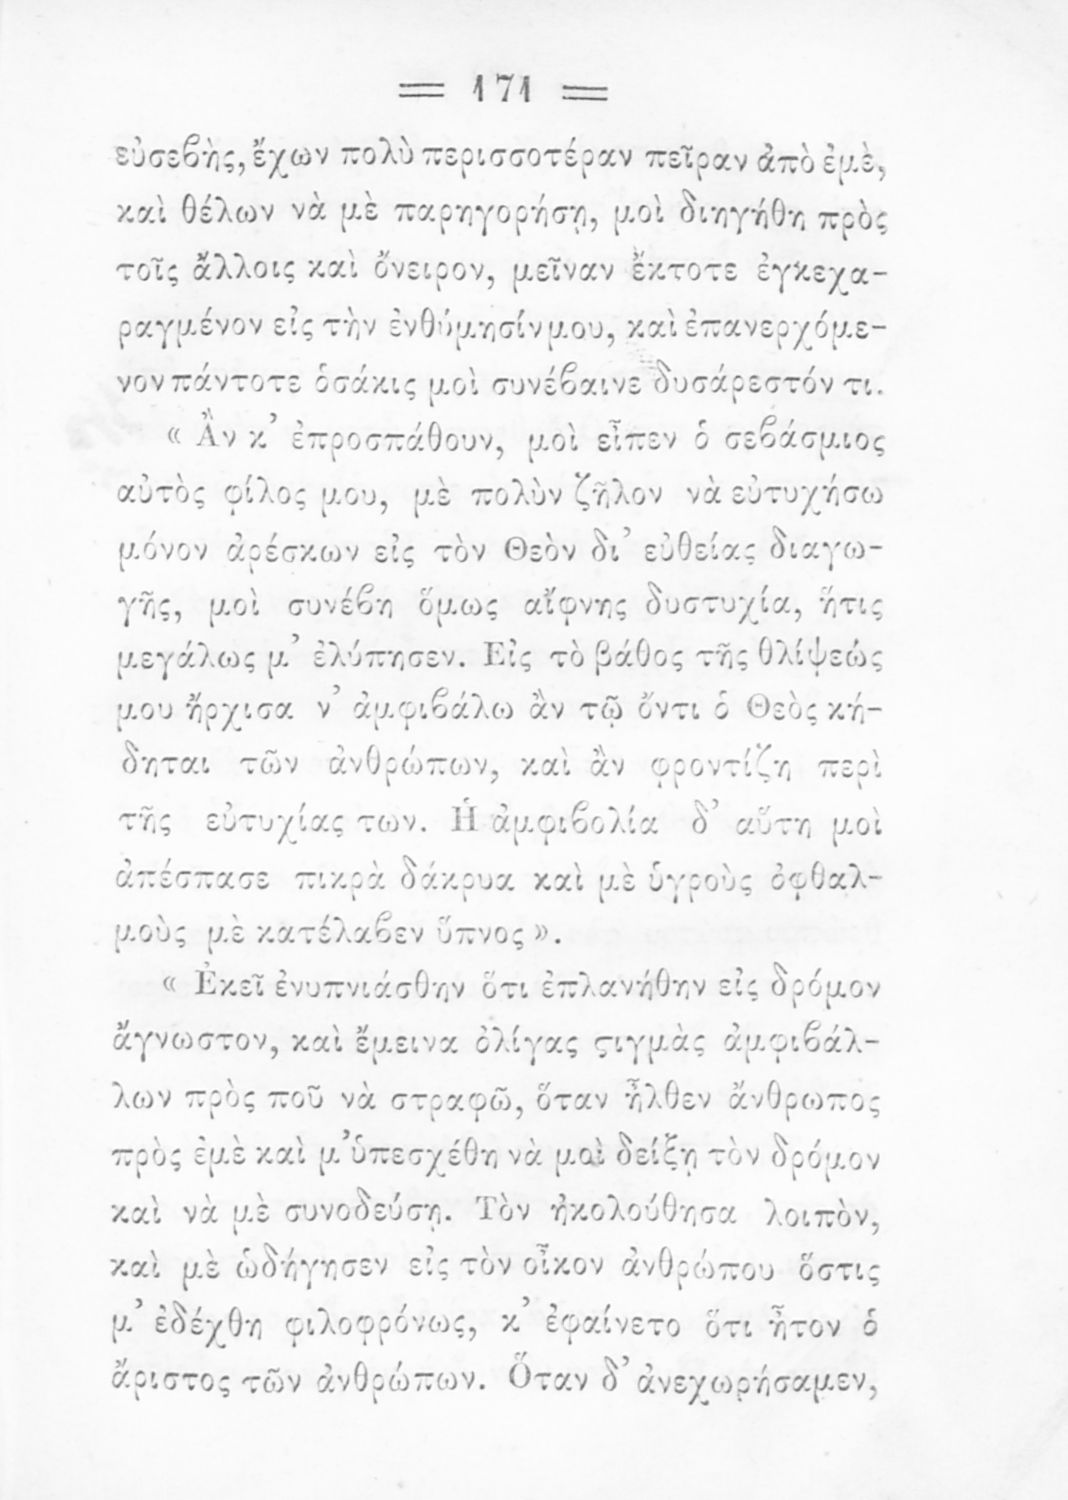 = 171 =
εὐσεβὴς, ἔχων πολὺ περισσοτέραν πεῖραν ἀπὸ ἐμὲ,
καὶ θέλων νὰ μὲ παρηγορήσῃ, μοὶ διηγήθη πρὸς
τοῖς ἄλλοις καὶ ὄνειρον, μεῖναν ἔκτοτε ἐγκεχα-
ραγμένον εἰς τὴν ἐνθύμησίν μου, καὶ ἐπανερχόμε-
νον πάντοτε ὁσάκις μοὶ συνέβαινε δυσάρεστόν τι.
« Ἂν κ’ ἐπροσπάθουν, μοὶ εἶπεν ὁ σεβάσμιος
αὐτὸς φίλος μου, μὲ πολὺν ζῆλον νὰ εὐτυχήσω
μόνον ἀρέσκων εἰς τὸν Θεὸν δι’ εὐθείας διαγω-
γῆς, μοὶ συνέβη ὅμως αἴφνης δυστυχία, ἥτις
μεγάλως μ’ ἐλύπησεν. Εἰς τὸ βάθος τῆς θλίψεώς
μου ἤρχισα ν’ ἀμφιβάλω ἂν τῷ ὄντι ὁ Θεὸς κή-
δηται τῶν ἀνθρώπων, καὶ ἂν φροντίζη περὶ
τῆς εὐτυχίας των. Ἡ ἀμφιβολία δ’ αὕτη μοὶ
ἀπέσπασε πικρὰ δάκρυα καὶ μὲ ὑγροὺς ὀφθαλ-
μοὺς μὲ κατέλαβεν ὕπνος ».
« Ἐκεῖ ἐνυπνιάσθην ὅτι ἐπλανήθην εἰς δρόμον
ἄγνωστον, καὶ ἔμεινα ὀλίγας ϛιγμὰς ἀμφιβάλ-
λων πρὸς ποῦ νὰ στραφῶ, ὅταν ἦλθεν ἄνθρωπος
πρὸς ἐμὲ καὶ μ’ ὑπεσχέθη νὰ μοὶ δείξῃ τὸν δρόμον
καὶ νὰ μὲ συνοδεύσῃ. Τὸν ἠκολούθησα λοιπὸν,
καὶ μὲ ὡδήγησεν εἰς τὸν οἶκον ἀνθρώπου ὅστις
μ’ ἐδέχθη φιλοφρόνως, κ’ ἐφαίνετο ὅτι ἦτον ὁ
ἄριστος τῶν ἀνθρώπων. Ὅταν δ’ ἀνεχωρήσαμεν,